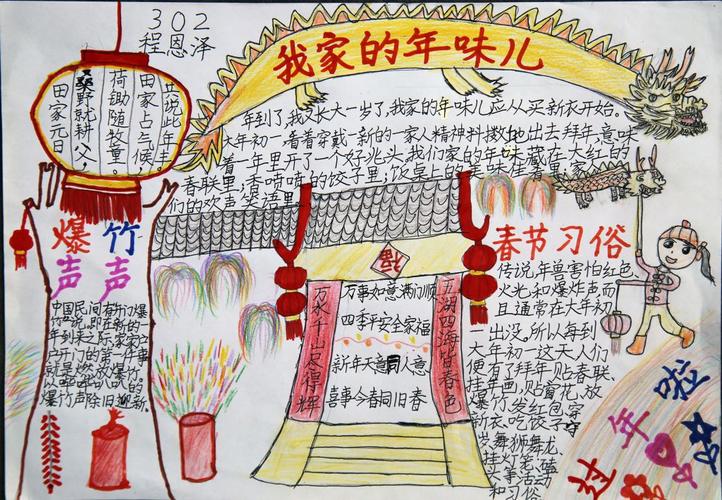 302
程恩泽
我家的年味儿
田家元日
桑野就耕父,
荷锄随牧童。
田家占气候,
说此年丰
年到了,我又长大一岁了,我家的年味儿应从买新衣开始。
大年初一,看着穿戴一新的一家人精神抖擞地出去拜年,意味
着一年里开了一个好兆头,我们家的年味藏在大红的
春联里;香喷喷的饺子里;饭桌上的年味 着 家人
们的欢声笑语里。
爆竹
声声
中国民间有开门爆
竹一说。即在新的一
年到来之际,家家户
户开门的第一件事
就是燃放爆竹,
以噼噼叭叭的
爆竹声除旧迎新。
福
五湖四海皆春色
万水千山尽得辉
万事如意满门顺
四季平安全家福
新年天意同人意
喜事今春同旧春
春节习俗
传说,年兽害怕红色
火光和爆炸声,而
且通常在大年初一
出没。所以每到
大年初一这天,人们
便有了拜年、贴春联、
挂年画,贴窗花,放
爆竹,发红包,穿
新衣,吃饺子,守
岁,舞狮舞龙,
挂灯笼,磕
头等活动
和习俗
过年啦